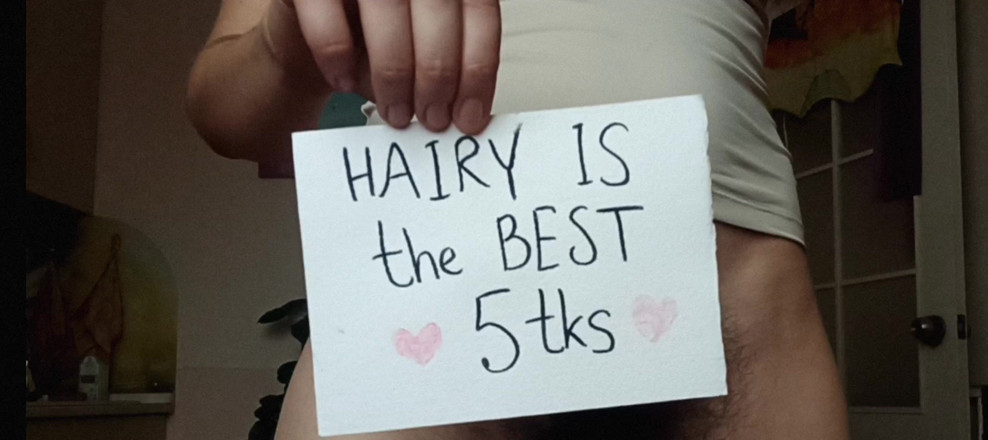 HAIRY IS
the BEST
5tks